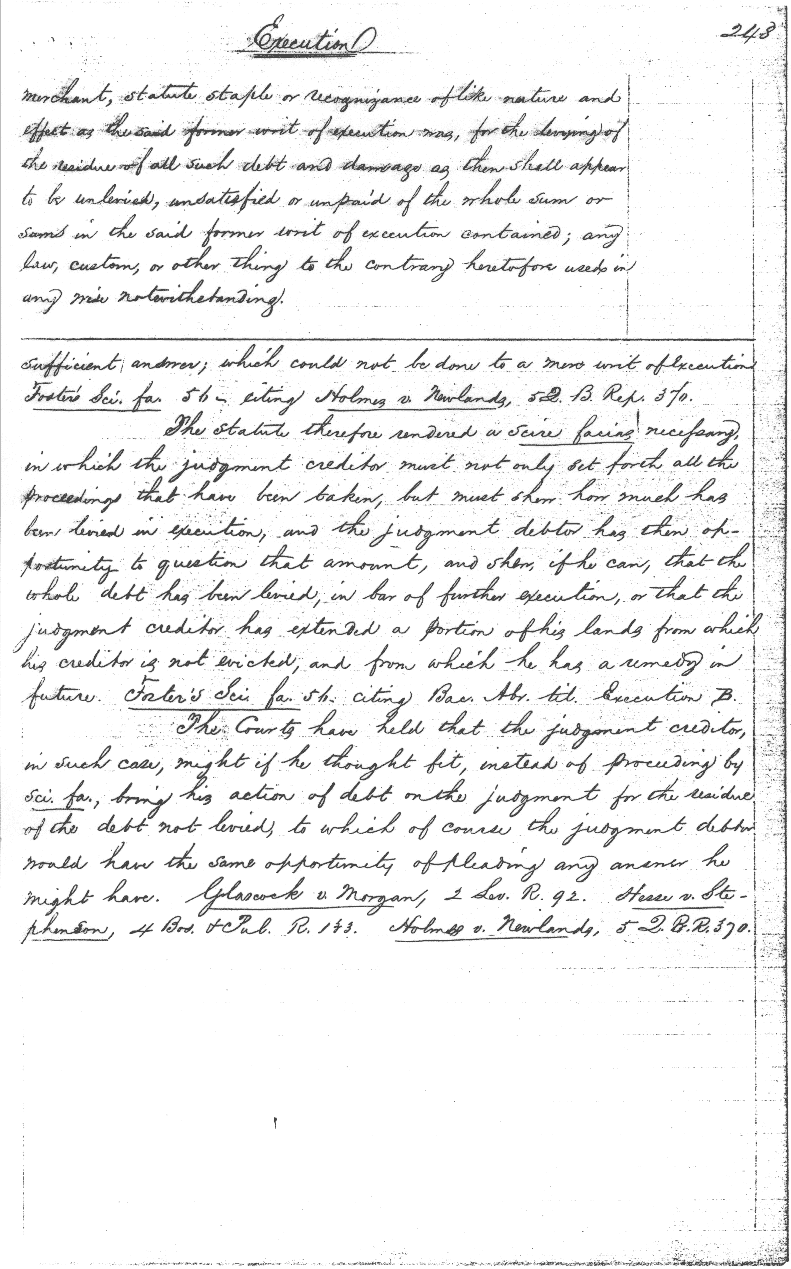 Execution
243
merchant, statute staple or recognizance of like nature and
effect as the said former writ of execution was, for the levying of
the residue of all such debt and damage as then shall appear
to be unlevied, unsatisfied or unpaid of the whole sum or
sums in the said former writ of execution contained; any
law, custom, or other thing to the contrary heretofore used in
any wise notwithstanding.
sufficient answer; which could not be done to a mere writ of Execution
Foster's Sci. fa. 56 - citing Holmes v. Newlands, 5 Q. B. Rep. 370.
The statute therefore rendered a scire facias necessary,
in which the judgment creditor must not only set forth all the
proceedings that have been taken, but must shew how much has
been levied in execution, and the judgment debtor has then op-
portunity to question that amount, and shew, if he can, that the
whole debt has been levied, in bar of further execution, or that the
judgment creditor has extended a portion of his lands from which
his creditor is not evicted, and from which he has a remedy in
future. Foster's Sci. fa. 56. citing Bac. Abr. tit. Execution B.
The Courts have held that the judgment creditor,
in such case, might if he thought fit, instead of proceeding by
Sci. fa., bring his action of debt on the judgment for the residue
of the debt not levied, to which of course the judgment debtor
would have the same opportunity of pleading any answer he
might have. Glascock v. Morgan, 2 Lev. R. 92. Hesse v. Ste-
phenson, 4 Bos. & Pul. R. 133. Holmes v. Newlands, 5 Q. B. R. 370.